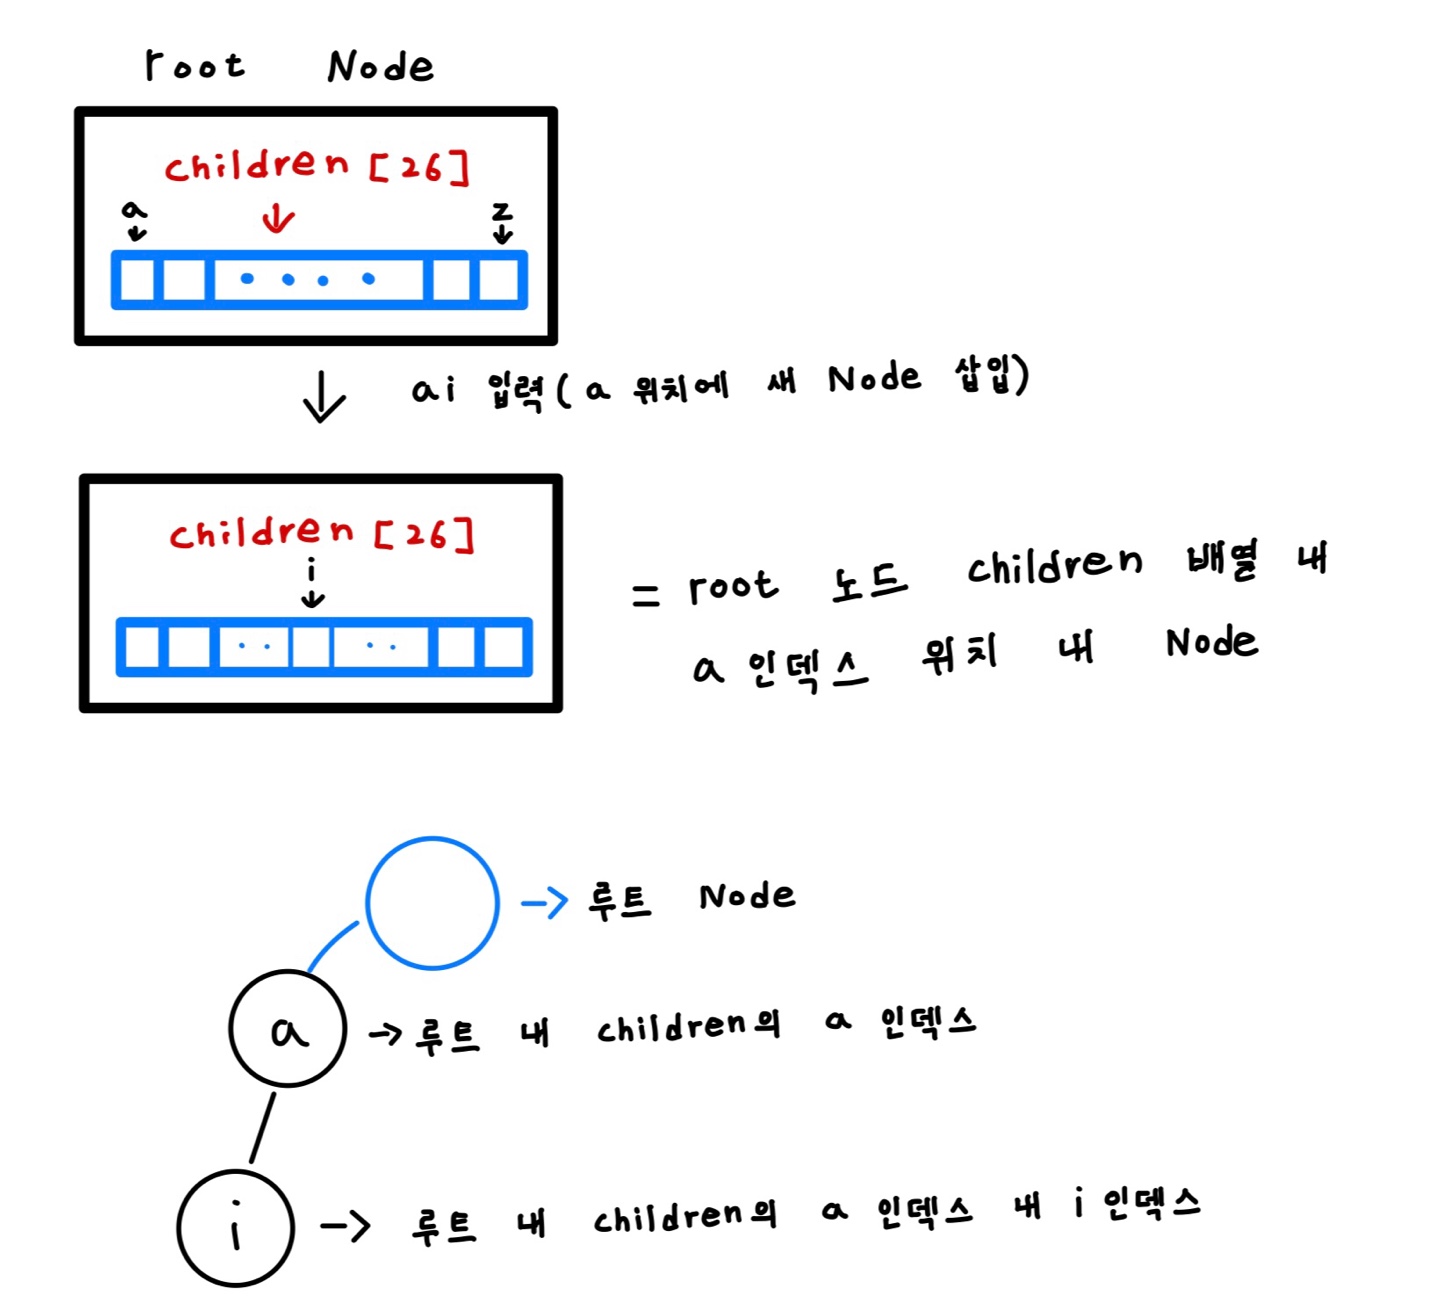 root Node
children [26]
a z
ai 입력(a 위치에 새 Node 삽입)
children [26]
i
= root 노드 children 배열 내
a 인덱스 위치 내 Node
루트 Node
a → 루트 내 children의 a 인덱스
i → 루트 내 children의 a 인덱스 내 i 인덱스